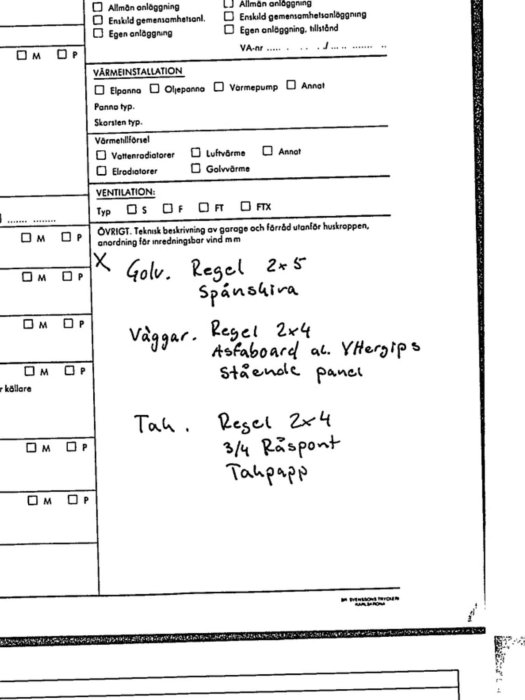 Allmän anläggning
Allmän anläggning
Enskild gemensamhetsanl.
Enskild gemensamhetsanläggning
Egen anläggning
Egen anläggning, tillstånd
VA-nr ..... . . ./... .....
M P
VÄRMEINSTALLATION
Elpanna Oljepanna Värmepump Annat
Panna typ.
Skorsten typ.
Värmetillförsel
Vattenradiatorer Luftvärme Annat
Elradiatorer Golvvärme
VENTILATION:
Typ S F FT FTX
M P
ÖVRIGT. Teknisk beskrivning av garage och förråd utanför huskroppen,
anordning för inredningsbar vind m m
X Golv. Regel 2x5
Spånskiva
M P
M P
Väggar. Regel 2x4
Asfaboard al. Yttergips
Stående panel
M P
källare
Tak. Regel 2x4
3/4 Råspont
Takpapp
M P
M P
SVENSSONS TRYCKERI
KARLSKRONA